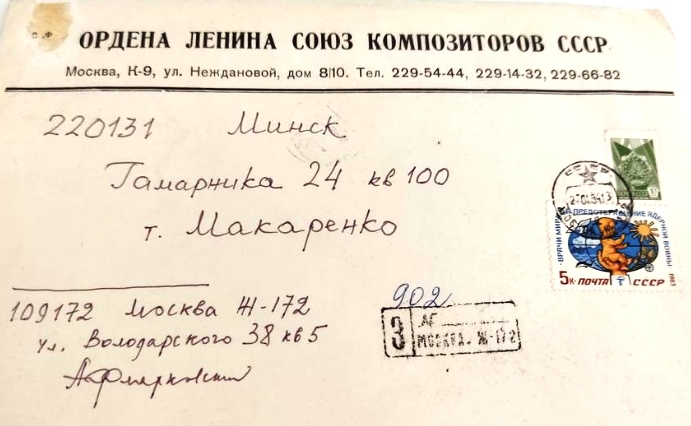 ОРДЕНА ЛЕНИНА СОЮЗ КОМПОЗИТОРОВ СССР
Москва, К-9, ул. Неждановой, дом 8|10. Тел. 229-54-44, 229-14-32, 229-66-82
220131 Минск
Гамарника 24 кв 100
т. Макаренко
ВРАЧИ МИРА ЗА ПРЕДОТВРАЩЕНИЕ ЯДЕРНОЙ ВОЙНЫ
5К ПОЧТА СССР
1983
109172 Москва Ж-172
ул. Володарского 38 кв 5
902
З
МОСКВА. Ж-172